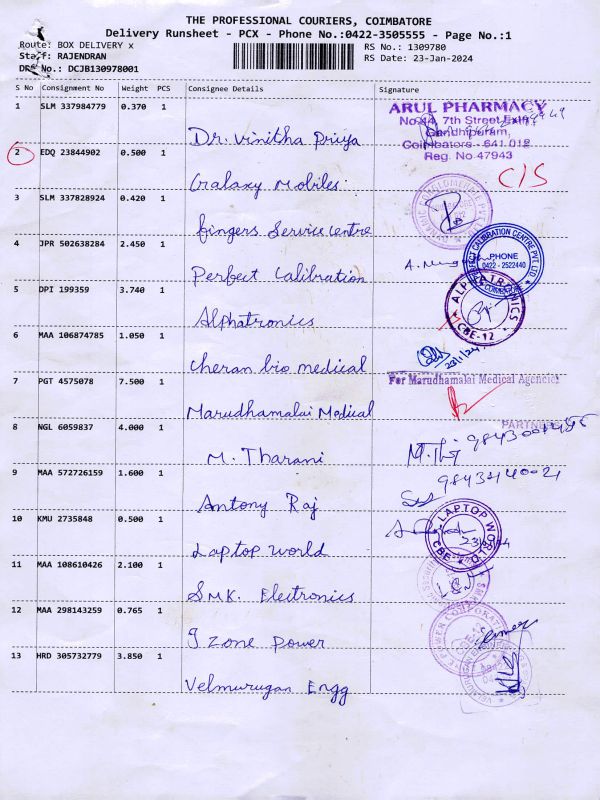 THE PROFESSIONAL COURIERS, COIMBATORE
Delivery Runsheet - PCX - Phone No.:0422-3505555 - Page No.:1
Route: BOX DELIVERY x
RS No.: 1309780
Staff: RAJENDRAN
RS Date: 23-Jan-2024
DRS No.: DCJB130978001
S No Consignment No Weight PCS Consignee Details Signature
1 SLM 337984779 0.370 1
ARUL PHARMACY
No 44, 7th Street Extn,
Gandhipuram,
Coimbatore - 641 012
Reg. No 47943
Dr. Vinitha Priya
2 EDQ 23844902 0.500 1
C/S
Galaxy Mobiles
3 SLM 337828924 0.420 1
fingers Service Centre
4 JPR 502638284 2.450 1
PERFECT CALIBRATION CENTRE PVT LTD
PHONE
0422 - 2522440
COIMBATORE
Perfect Calibration
5 DPI 199359 3.740 1
ALPHATRONICS
CBE-12
Alphatronics
6 MAA 106874785 1.050 1
23/1/24
Cheran bio medical
7 PGT 4575078 7.500 1
For Marudhamalai Medical Agencies
Marudhamalai Medical
PARTNER
8 NGL 6059837 4.000 1
M. Tharani
9 MAA 572726159 1.600 1
9843440021
Antony Raj
10 KMU 2735848 0.500 1
LAPTOP WORLD
CBE
Laptop World
11 MAA 108610426 2.100 1
SMK. Electronics
12 MAA 298143259 0.765 1
I zone power
13 HRD 305732779 3.850 1
Velmurugan Engg